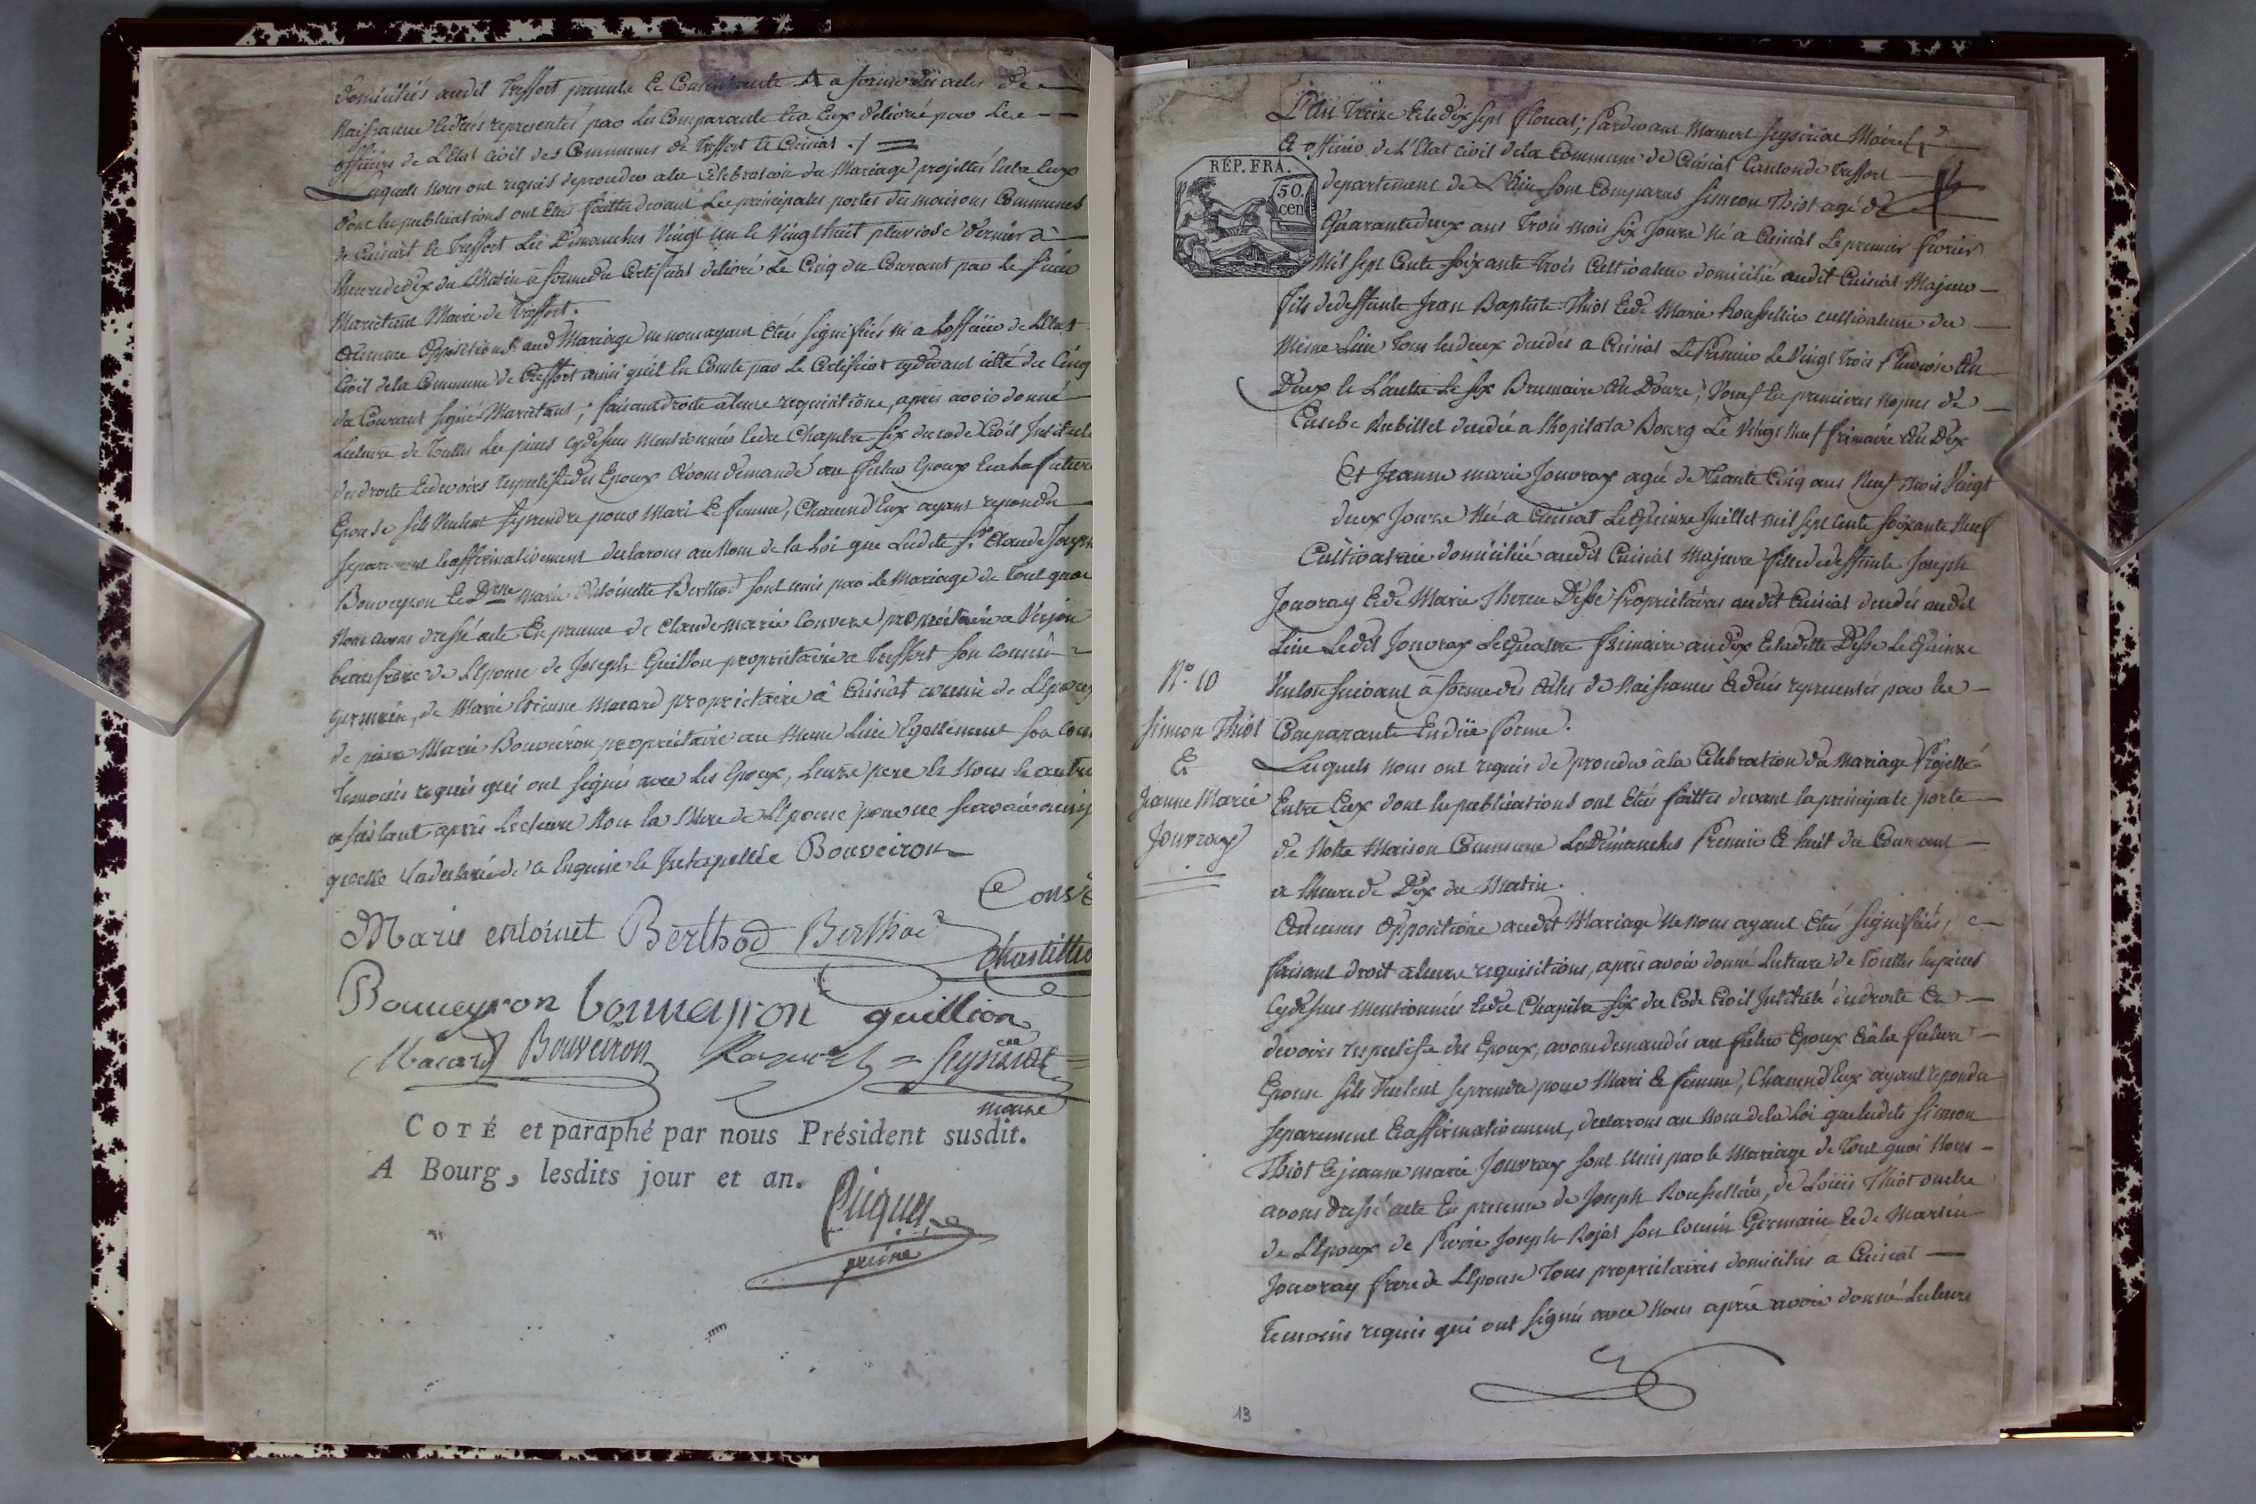 domiciliés audit Treffort presents et Consentants a forme des actes de
Naissance et decés representés par les Comparants et a Eux délivré par les
officiers de L'Etat civil des Communes de Treffort et Cuisiat ./
Lesquels nous ont requis de proceder a la Celebration du Mariage projetté Entre Eux
dont les publications ont Etés faittes devant Les principales portes des maisons Communes
de Cuisiat et Treffort Les Dimanches Vingt un et Vingt huit pluviose dernier à
Lheure de dix du Matin a forme du Certificat delivré Le Cinq du Courant par le sieur
Marietant Maire de Treffort.
Aucune Opposition aud Mariage ne nous ayant Etés Signifiés ni a Lofficier de Letat
Civil de la Commune de Treffort ainsi quil En Conste par Le Certificat cydevant cité du Cinq
du Courant signé Marietant ; faisant droit a leur requisitions, apres avoir donné
Lecture de Toutes Les pieces cydessus Mentionnées et du Chapitre six du code Civil Intitulé
des droits et devoirs respectifs des Epoux Avons demandé au futur Epoux Et a la future
Epouse sils Veulent se prendre pour Mari et femme, Chacun d'Eux ayant repondu
separement et affirmativement declarons au Nom de la Loi que Ledits Sr Claude Joseph
Bouveyron et Delle Marie Antoinette Berthod sont unis par le Mariage de Tout quoi
Nous avons dressé acte En presence de Claude marie Convert propriétaire a Verjon
beaufrere de L'Epouse de Joseph Guillon propriétaire a Treffort son cousin
germain, de Marie Etienne Macard proprietaire à Cuisiat cousin de L'Epoux
de pierre Marie Bouveiron propriétaire au Meme Lieu Egallement son
Temoins requis qui ont signés avec les Epoux, Leurs pere et Nous
ce faisant après Lecture Non la Mere de L'Epouse pour ne scavoir
quelle a declaré de ce Enquise et Interpellée Bouveiron
Marie entoinet Berthod Berthod
Bouveyron bouveyron guillion
Macard Bouveiron
maire
COTÉ et paraphé par nous Président susdit.
A Bourg, lesdits jour et an.
L'An Treize et le dix sept floreal ; Pardevant Mamert Seysiriat Maire
et officier de L'Etat Civil de la Commune de Cuisiat Canton de Treffort
departement de L'Ain sont Comparus Simeon Thiot agé de
RÉP. FRA.
50.
cen
Quarante deux ans Trois mois six Jours Né a Cuisiat Le premier fevrier
Mil sept Cents soixante Trois Cultivateur domicilié audit Cuisiat Majeur
fils de deffunts Jean Baptiste Thiot et de Marie Rousselier cultivateurs du
Meme Lieu Tous les deux decedés a Cuisiat Le Premier Le Vingt trois Pluviose An
Deux et L'autre Le six Brumaire An Douze, Veuf En premieres nopces de
Eusebe Rubillet decedée a Lhopital a Bourg Le Vingt Neuf frimaire An Dix
Et Jeanne marie Jouvray agée de Trante Cinq ans Neuf Mois Vingt
deux Jours Née a Cuisiat Le Quinze Juillet mil sept Cents soixante Neuf
Cultivatrice domiciliée audit Cuisiat Majeure fille de deffunts Joseph
Jouvray et de Marie Therese Desse Propriétaires audit Cuisiat decedés audit
Lieu Ledit Jouvray Le Quatre frimaire an dix Et ladite Desse Le Quinze
Ventose Suivant à forme des Actes de Naissances et decés representés par les
Comparants En düe forme.
No 10
Simeon Thiot
Et
Jeanne Marie
Jouvray
Lesquels nous ont requis de proceder à la Celebration du Mariage Projetté
Entre Eux dont les publications ont Etés faittes devant la principale porte
de Notre Maison Commune Les Dimanches Premier et huit du Courant
a lheure de Dix du Matin.
Aucunes Opposition audit Mariage Ne Nous ayant Etés Signifiés,
faisant droit a leurs requisitions, après avoir donné Lecture de Touttes les pieces
Cydessus Mentionnées et du Chapitre six du Code Civil Intitulé des droits Et
devoirs respectifs des Epoux, avons demandés au futur Epoux Et à la future
Epouse sils Veulent se prendre pour Mari et femme, Chacun d'Eux ayant repondu
separement Et affirmativement, declarons au Nom de la Loi que lesdits Simeon
Thiot et jeanne marie Jouvray sont Unis par le Mariage de Tout quoi Nous
avons dressé acte En presence de Joseph Rousselier, de Loüis Thiot oncle
de L'Epoux de Pierre Joseph Rojat son Cousin Germain et de Martin
Jouvray frere de L'Epouse Tous proprietaires domicilies a Cuisiat
Temoins requis qui ont signés avec Nous après avoir donné Lecture
13